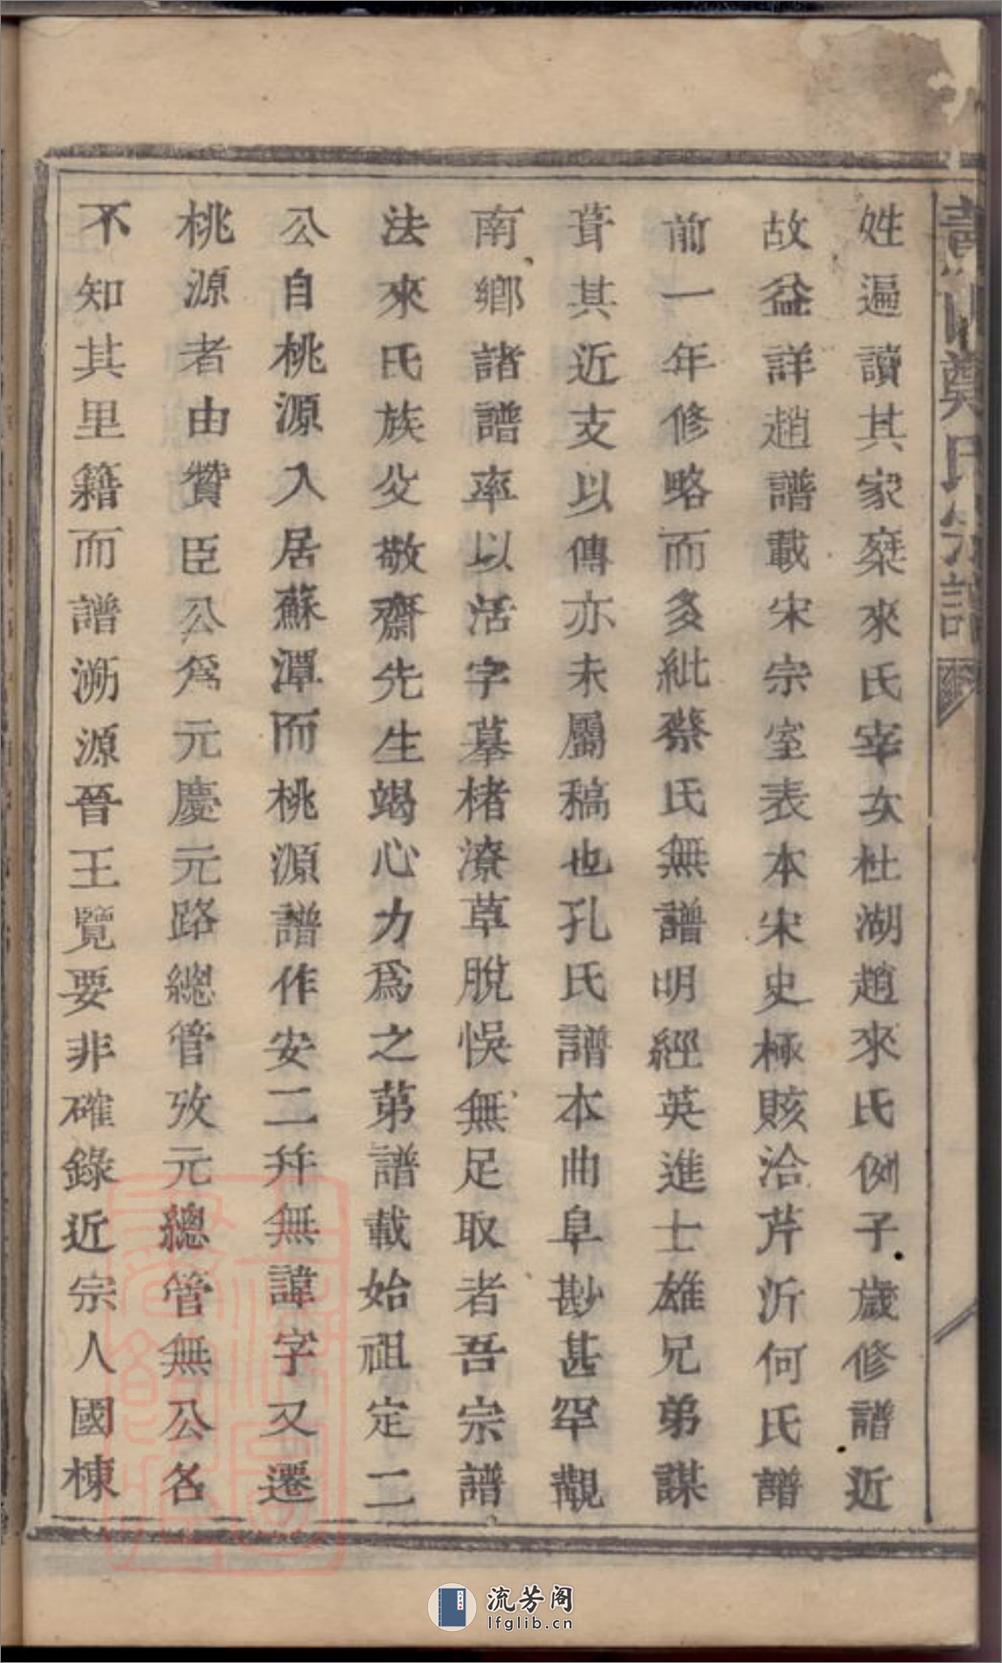 姓遍讀其家椉來氏宰女杜湖趙來氏例子歲修譜近
故益詳趙譜載宋宗室表本宋史極賅洽芹沂何氏譜
前一年修略而多紕蔡氏無譜明經英進士雄兄弟謀
葺其近支以傳亦未屬稿也孔氏譜本曲阜勘甚罕覯
南鄉諸譜率以活字摹楮潦草脫悞無足取者吾宗譜
法來氏族父敬齋先生竭心力為之第譜載始祖定二
公自桃源入居蘇潭而桃源譜作安二并無諱字又遷
桃源者由贊臣公為元慶元路總管攷元總管無公名
不知其里籍而譜溯源晉王覽要非確錄近宗人國棟
氏宗譜
流芳阁
lfglib.cn